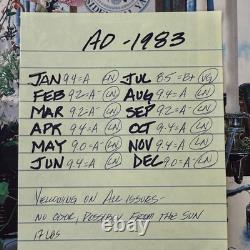 AD - 1983
JAN 9.4=A LN JUL 85=B+ VG
FEB 9.2=A- LN AUG 9.4=A LN
MAR 9.2=A- LN SEP 9.2=A- LN
APR 9.4=A LN OCT 9.4=A LN
MAY 9.0=A- LN NOV 9.4=A LN
JUN 9.4=A LN DEC 9.0=A- LN
YELLOWING ON ALL ISSUES-
NO ODOR, POSSIBLY FROM THE SUN
17 LBS